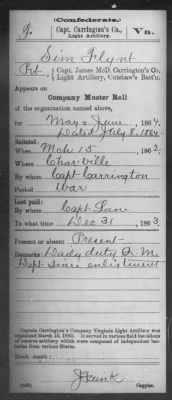 (Confederate.)
F. Capt. Carrington's Co., Va.
Light Artillery.
Sim Flynt
Pvt, Capt. James McD. Carrington's Co.
Light Artillery, Cutshaw's Batt'n.
Appears on
Company Muster Roll
of the organization named above,
for May & June, 1864.
Dated July 8, 1864
Enlisted:
When Mch 15, 1862.
Where Char'ville
By whom Capt Carrington
Period war
Last paid:
By whom Capt Lane
To what time Dec 31, 1863.
Present or absent Present
Remarks: Daily duty Q. M.
Dept since enlistment
Captain Carrington's Company Virginia Light Artillery was
organized March 15, 1862. It served in various field batteries
of reserve artillery which were composed of independent bat-
teries from various States.
Book mark:
(642)
Copyist.